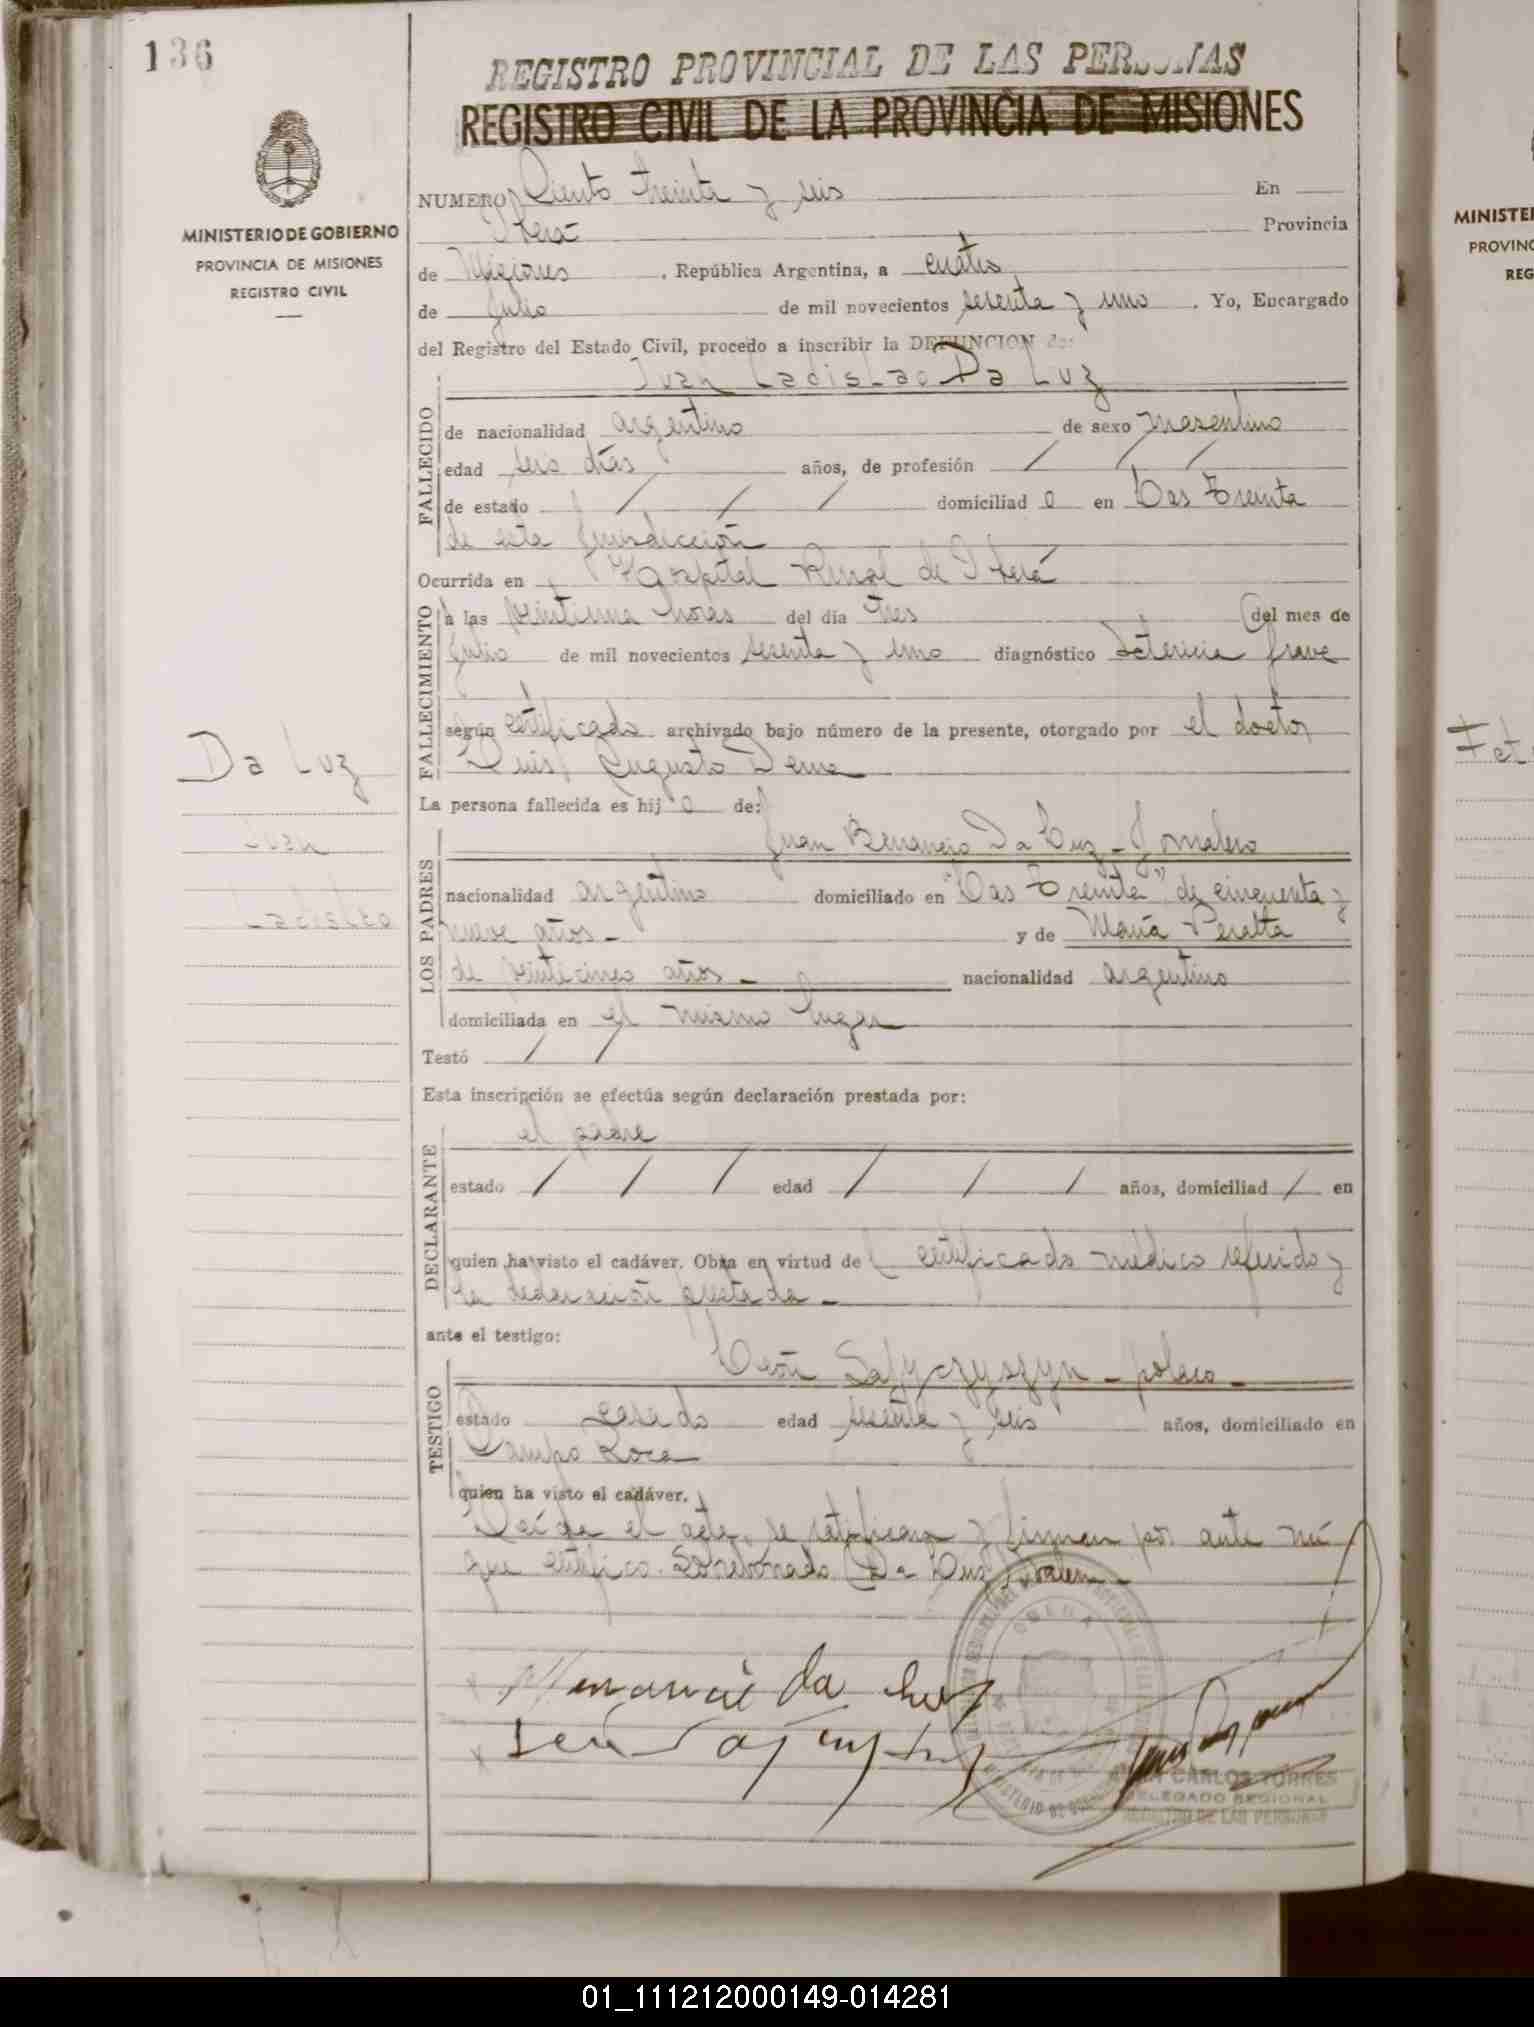 136
REGISTRO PROVINCIAL DE LAS PERSONAS
REGISTRO CIVIL DE LA PROVINCIA DE MISIONES
MINISTERIO DE GOBIERNO
PROVINCIA DE MISIONES
REGISTRO CIVIL
NUMERO Ciento treinta y seis En
Oberá Provincia
de Misiones, República Argentina, a cuatro
de julio de mil novecientos sesenta y uno. Yo, Encargado
del Registro del Estado Civil, procedo a inscribir la DEFUNCION de:
Juan Ladislao Da Luz
FALLECIDO
de nacionalidad argentino de sexo masculino
edad seis días años, de profesión / / /
de estado / / / domiciliado en Las Treinta
de esta jurisdicción
Ocurrida en Hospital Rural de Oberá
FALLECIMIENTO
a las veintiuna horas del día tres del mes de
julio de mil novecientos sesenta y uno diagnóstico Ictericia grave
según certificado archivado bajo número de la presente, otorgado por el doctor
Luis Augusto Derna
La persona fallecida es hijo de:
Da Luz
Juan
Ladislao
LOS PADRES
Juan Benancio Da Luz - Jornalero
nacionalidad argentino domiciliado en "Las Treinta" de cincuenta y
nueve años - y de María Peralta
de veinticinco años - nacionalidad argentino
domiciliada en el mismo lugar
Testó / /
Esta inscripción se efectúa según declaración prestada por:
el padre
DECLARANTE
estado / / / edad / / / años, domiciliad / en
quien ha visto el cadáver. Obra en virtud de certificado médico referido y
la declaración prestada -
ante el testigo:
León - polaco -
TESTIGO
estado casado edad sesenta y seis años, domiciliado en
Campo Roca
quien ha visto el cadáver.
Leída el acta, se ratifican y firman por ante mí
que certifico. Sobreborrado (Da Luz) valen -
Da Luz
OBERA
JUAN CARLOS TORRES
DELEGADO REGIONAL
REGISTRO DE LAS PERSONAS
MINISTE
PROVINC
REG
01_111212000149-014281